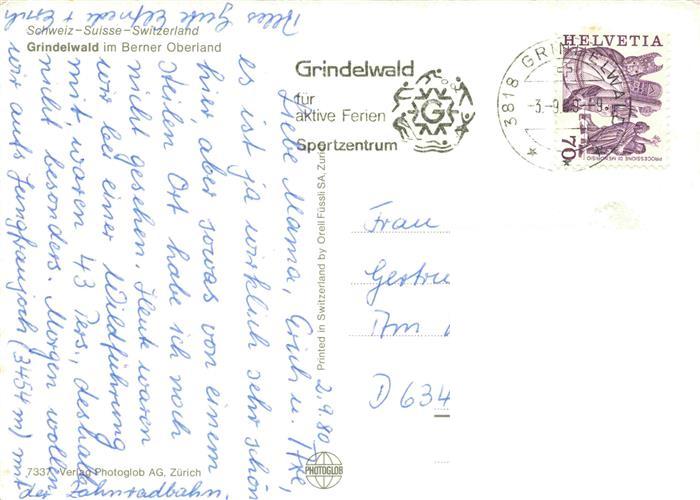 Schweiz–Suisse–Switzerland
Grindelwald im Berner Oberland
Grindelwald
für
aktive Ferien
Sportzentrum
G
3818 GRINDELWALD
-3.-9.80-9
HELVETIA
70
PROCESSIONE DI MENDRISIO
2.9.80
Liebe Mama, Erich u. Ilse,
es ist ja wirklich sehr schön
hier aber sowas von einem
steilen Ort habe ich noch
nicht gesehen. Heute waren
wir bei einer Wildführung
mit, waren 43 Pers., deshalb
nicht besonders. Morgen wollen
wir aufs Jungfraujoch (3454 m) mit
der Zahnradbahn.
Alles Gute Elfriede + Erich
Frau
Gertru
Am
D 634
Printed in Switzerland by Orell Füssli SA, Zürich
PHOTOGLOB
7337 Verlag Photoglob AG, Zürich